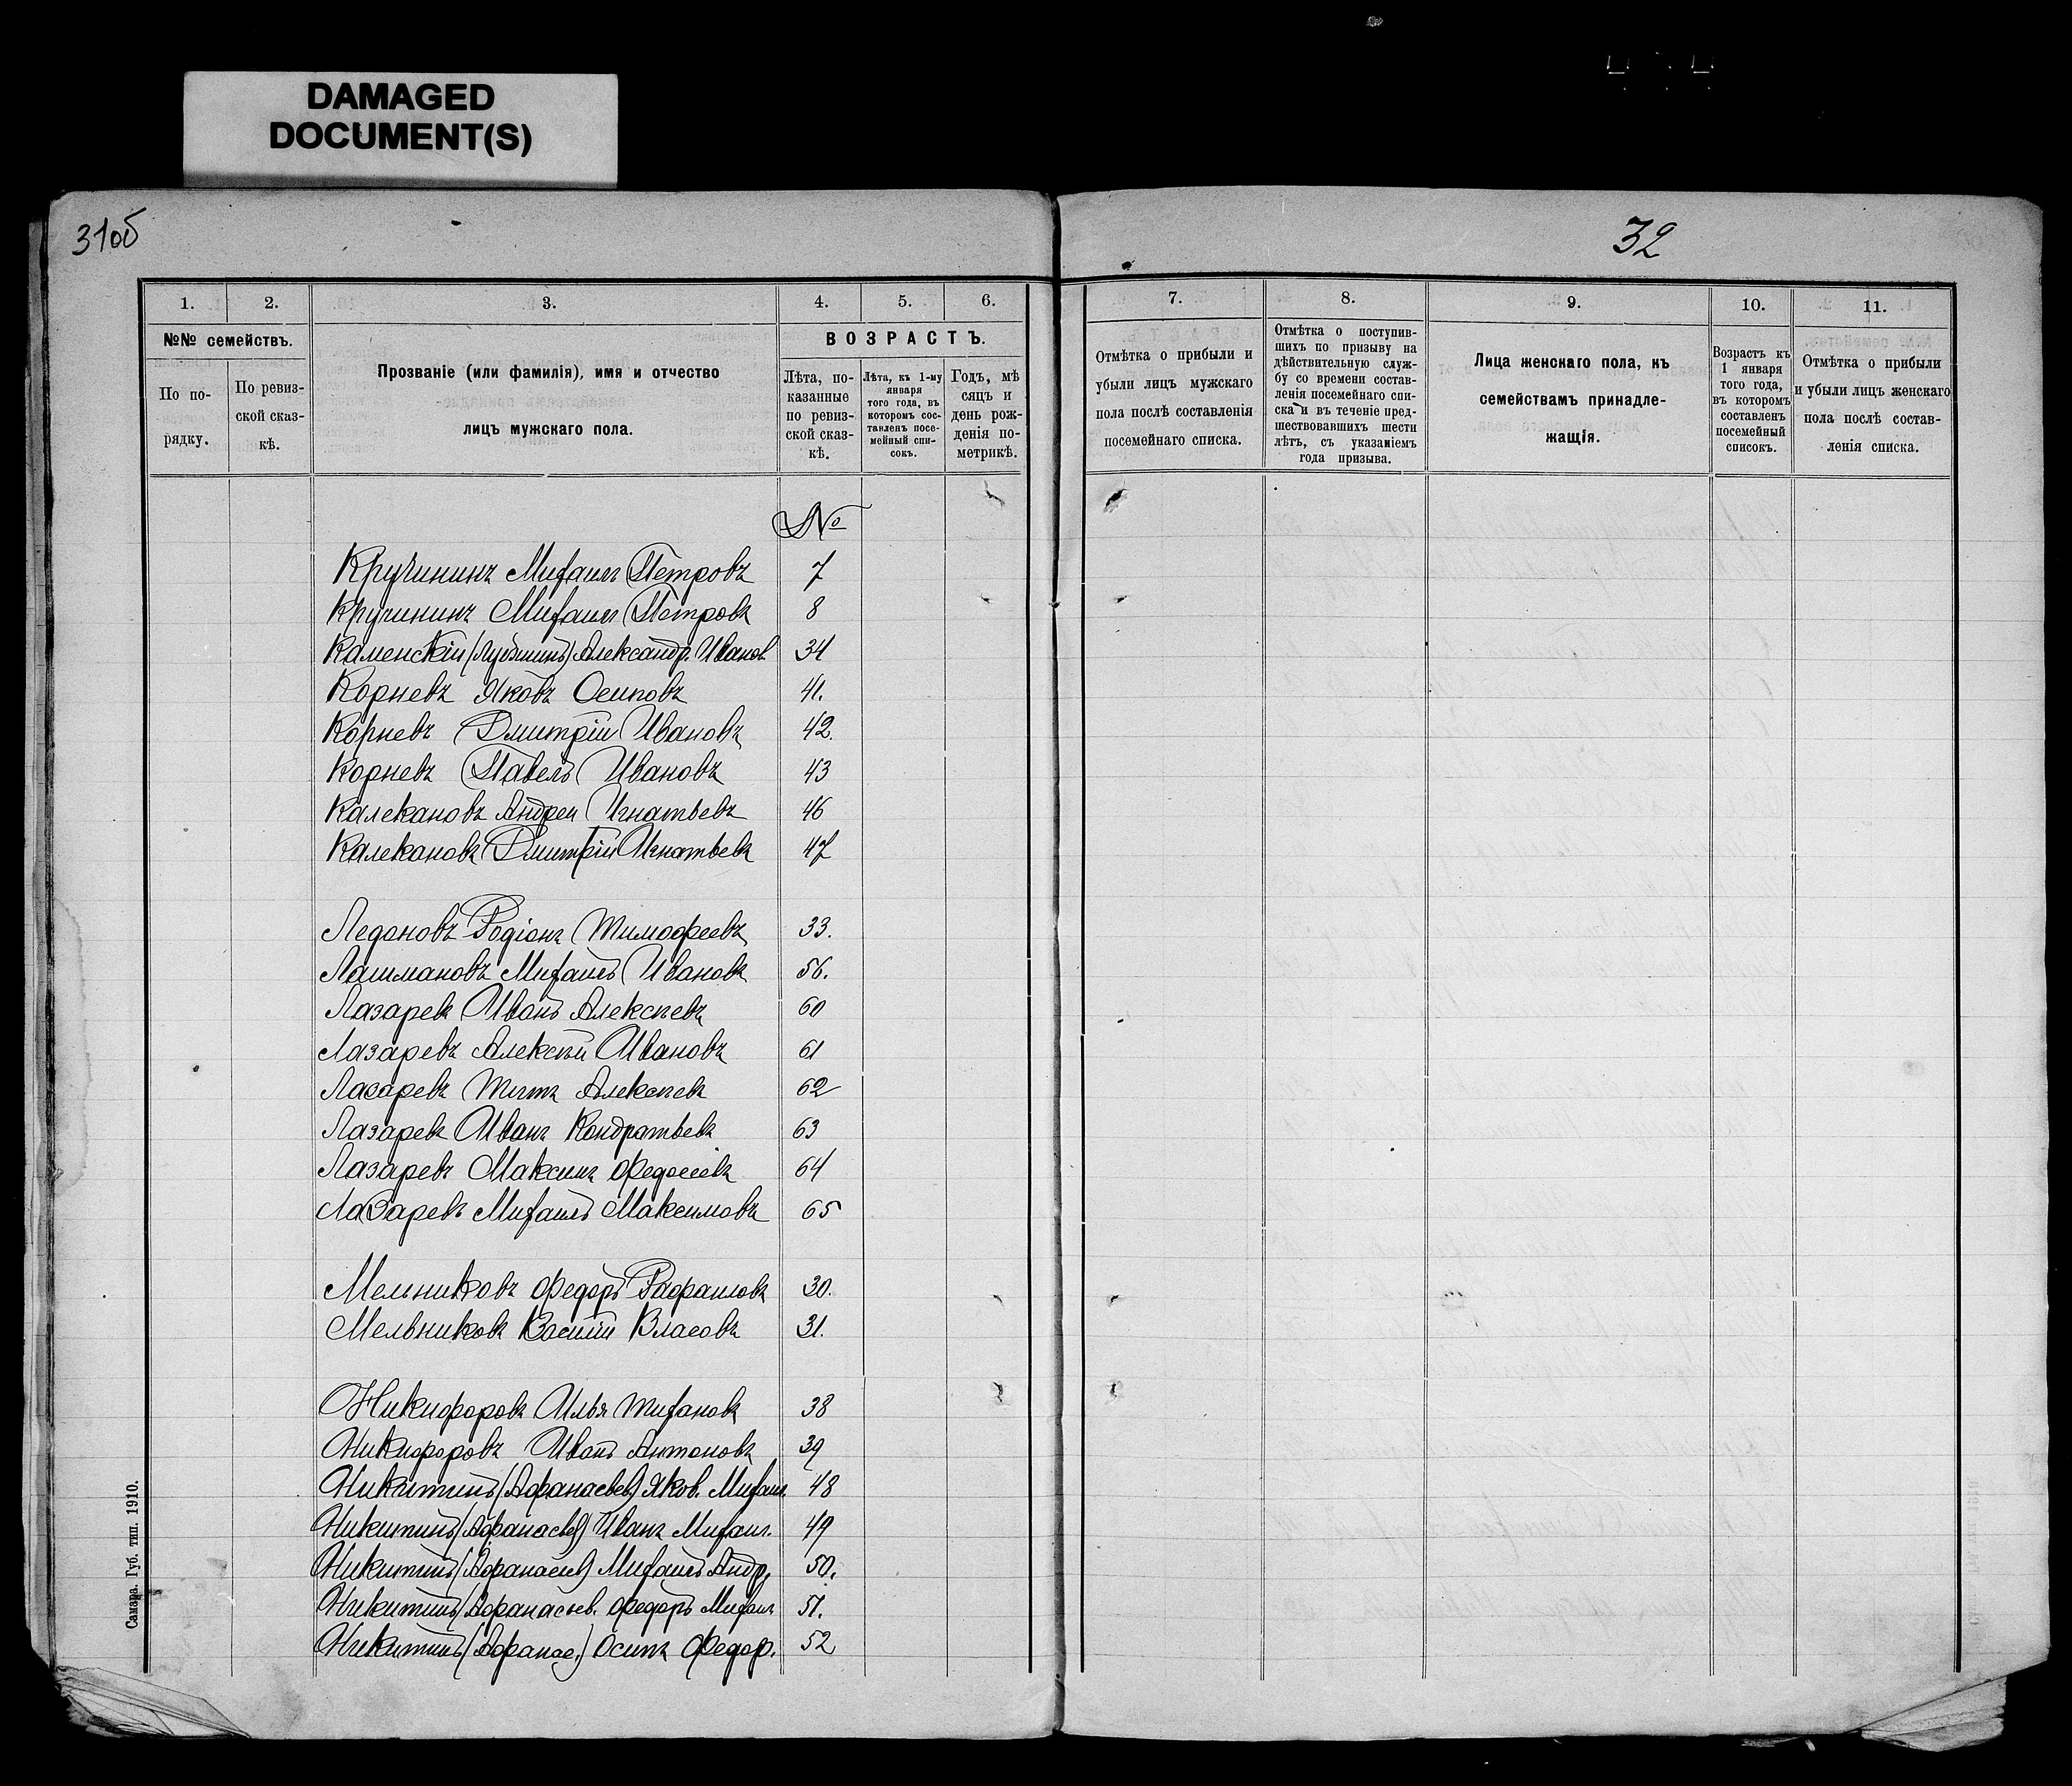 DAMAGED
DOCUMENT(S)
31об
32
1.
2.
3.
4.
5.
6.
№№ семействъ.
По по-
рядку.
По ревиз-
ской сказ-
кѣ.
Прозваніе (или фамилія), имя и отчество
лицъ мужскаго пола.
ВОЗРАСТЪ.
Лѣта, по-
казанные
по ревиз-
ской сказ-
кѣ.
Лѣта, къ 1-му
января
того года, въ
которомъ сос-
тавленъ посе-
мейный спи-
сокъ.
Годъ, мѣ
сяцъ и
день рож-
денія по-
метрикѣ.
7.
8.
9.
10.
11.
Отмѣтка о прибыли и
убыли лицъ мужскаго
пола послѣ составленія
посемейнаго списка.
Отмѣтка о поступив-
шихъ по призыву на
дѣйствительную служ-
бу со времени состав-
ленія посемейнаго спи-
ска и въ теченіе пред-
шествовавшихъ шести
лѣтъ, съ указаніемъ
года призыва.
Лица женскаго пола, къ
семействамъ принадле-
жащія.
Возрастъ къ
1 января
того года,
въ которомъ
составленъ
посемейный
списокъ.
Отмѣтка о прибыли
и убыли лицъ женскаго
пола послѣ состав-
ленія списка.
№
Кручининъ Михаилъ Петровъ 7
Кручининъ Михаилъ Петровъ 8
Каменскій Александр. Иванов 34
Корневъ Яковъ Осиповъ 41.
Корневъ Дмитрій Ивановъ 42.
Корневъ Павелъ Ивановъ 43
Калекановъ Андрей Игнатьевъ 46
Калекановъ Дмитрій Игнатьевъ 47
Ледановъ Родіонъ Тимофеевъ 33.
Лашмановъ Михаилъ Ивановъ 56.
Лазаревъ Иванъ Алексѣевъ 60
Лазаревъ Алексѣй Ивановъ 61
Лазаревъ Титъ Алексѣевъ 62
Лазаревъ Иванъ Кондратьевъ 63
Лазаревъ Максимъ 64
Лазаревъ Михаилъ Максимовъ 65
Мельниковъ Федоръ Рафаиловъ 30.
Мельниковъ Василій Власовъ 31.
Никифоровъ Илья Тихановъ 38
Никифоровъ Иванъ Антоновъ 39
Никитинъ (Афанасьев) Яков. Михаил. 48
Никитинъ (Афанасьев) Иванъ Михаил. 49
Никитинъ (Афанасьев) Михаилъ Андр. 50.
Никитинъ (Афанасьев. Федоръ Михаил 51.
Никитинъ (Афанас.) Осипъ Федор. 52
Самара. Губ. тип. 1910.